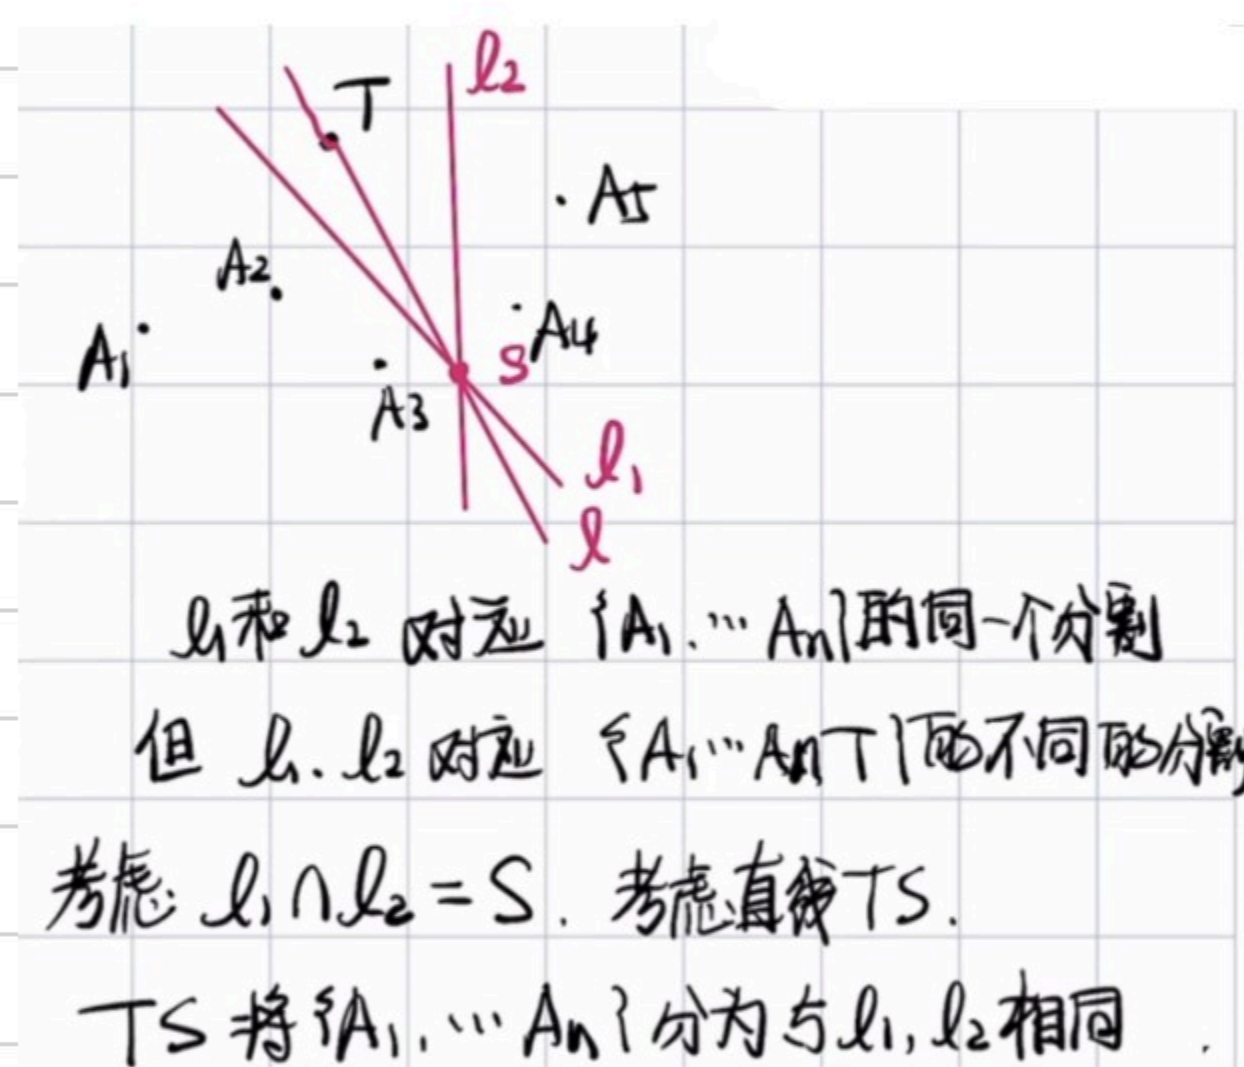 l2
T
A5
A2
A4
A1
S
A3
l1
l
l1和l2 对应 {A1,…An}的同一个分割
但 l1、l2 对应 {A1…AnT}的不同的分割
考虑: l1∩l2=S. 考虑直线TS.
TS将{A1,…An}分为与l1,l2相同.